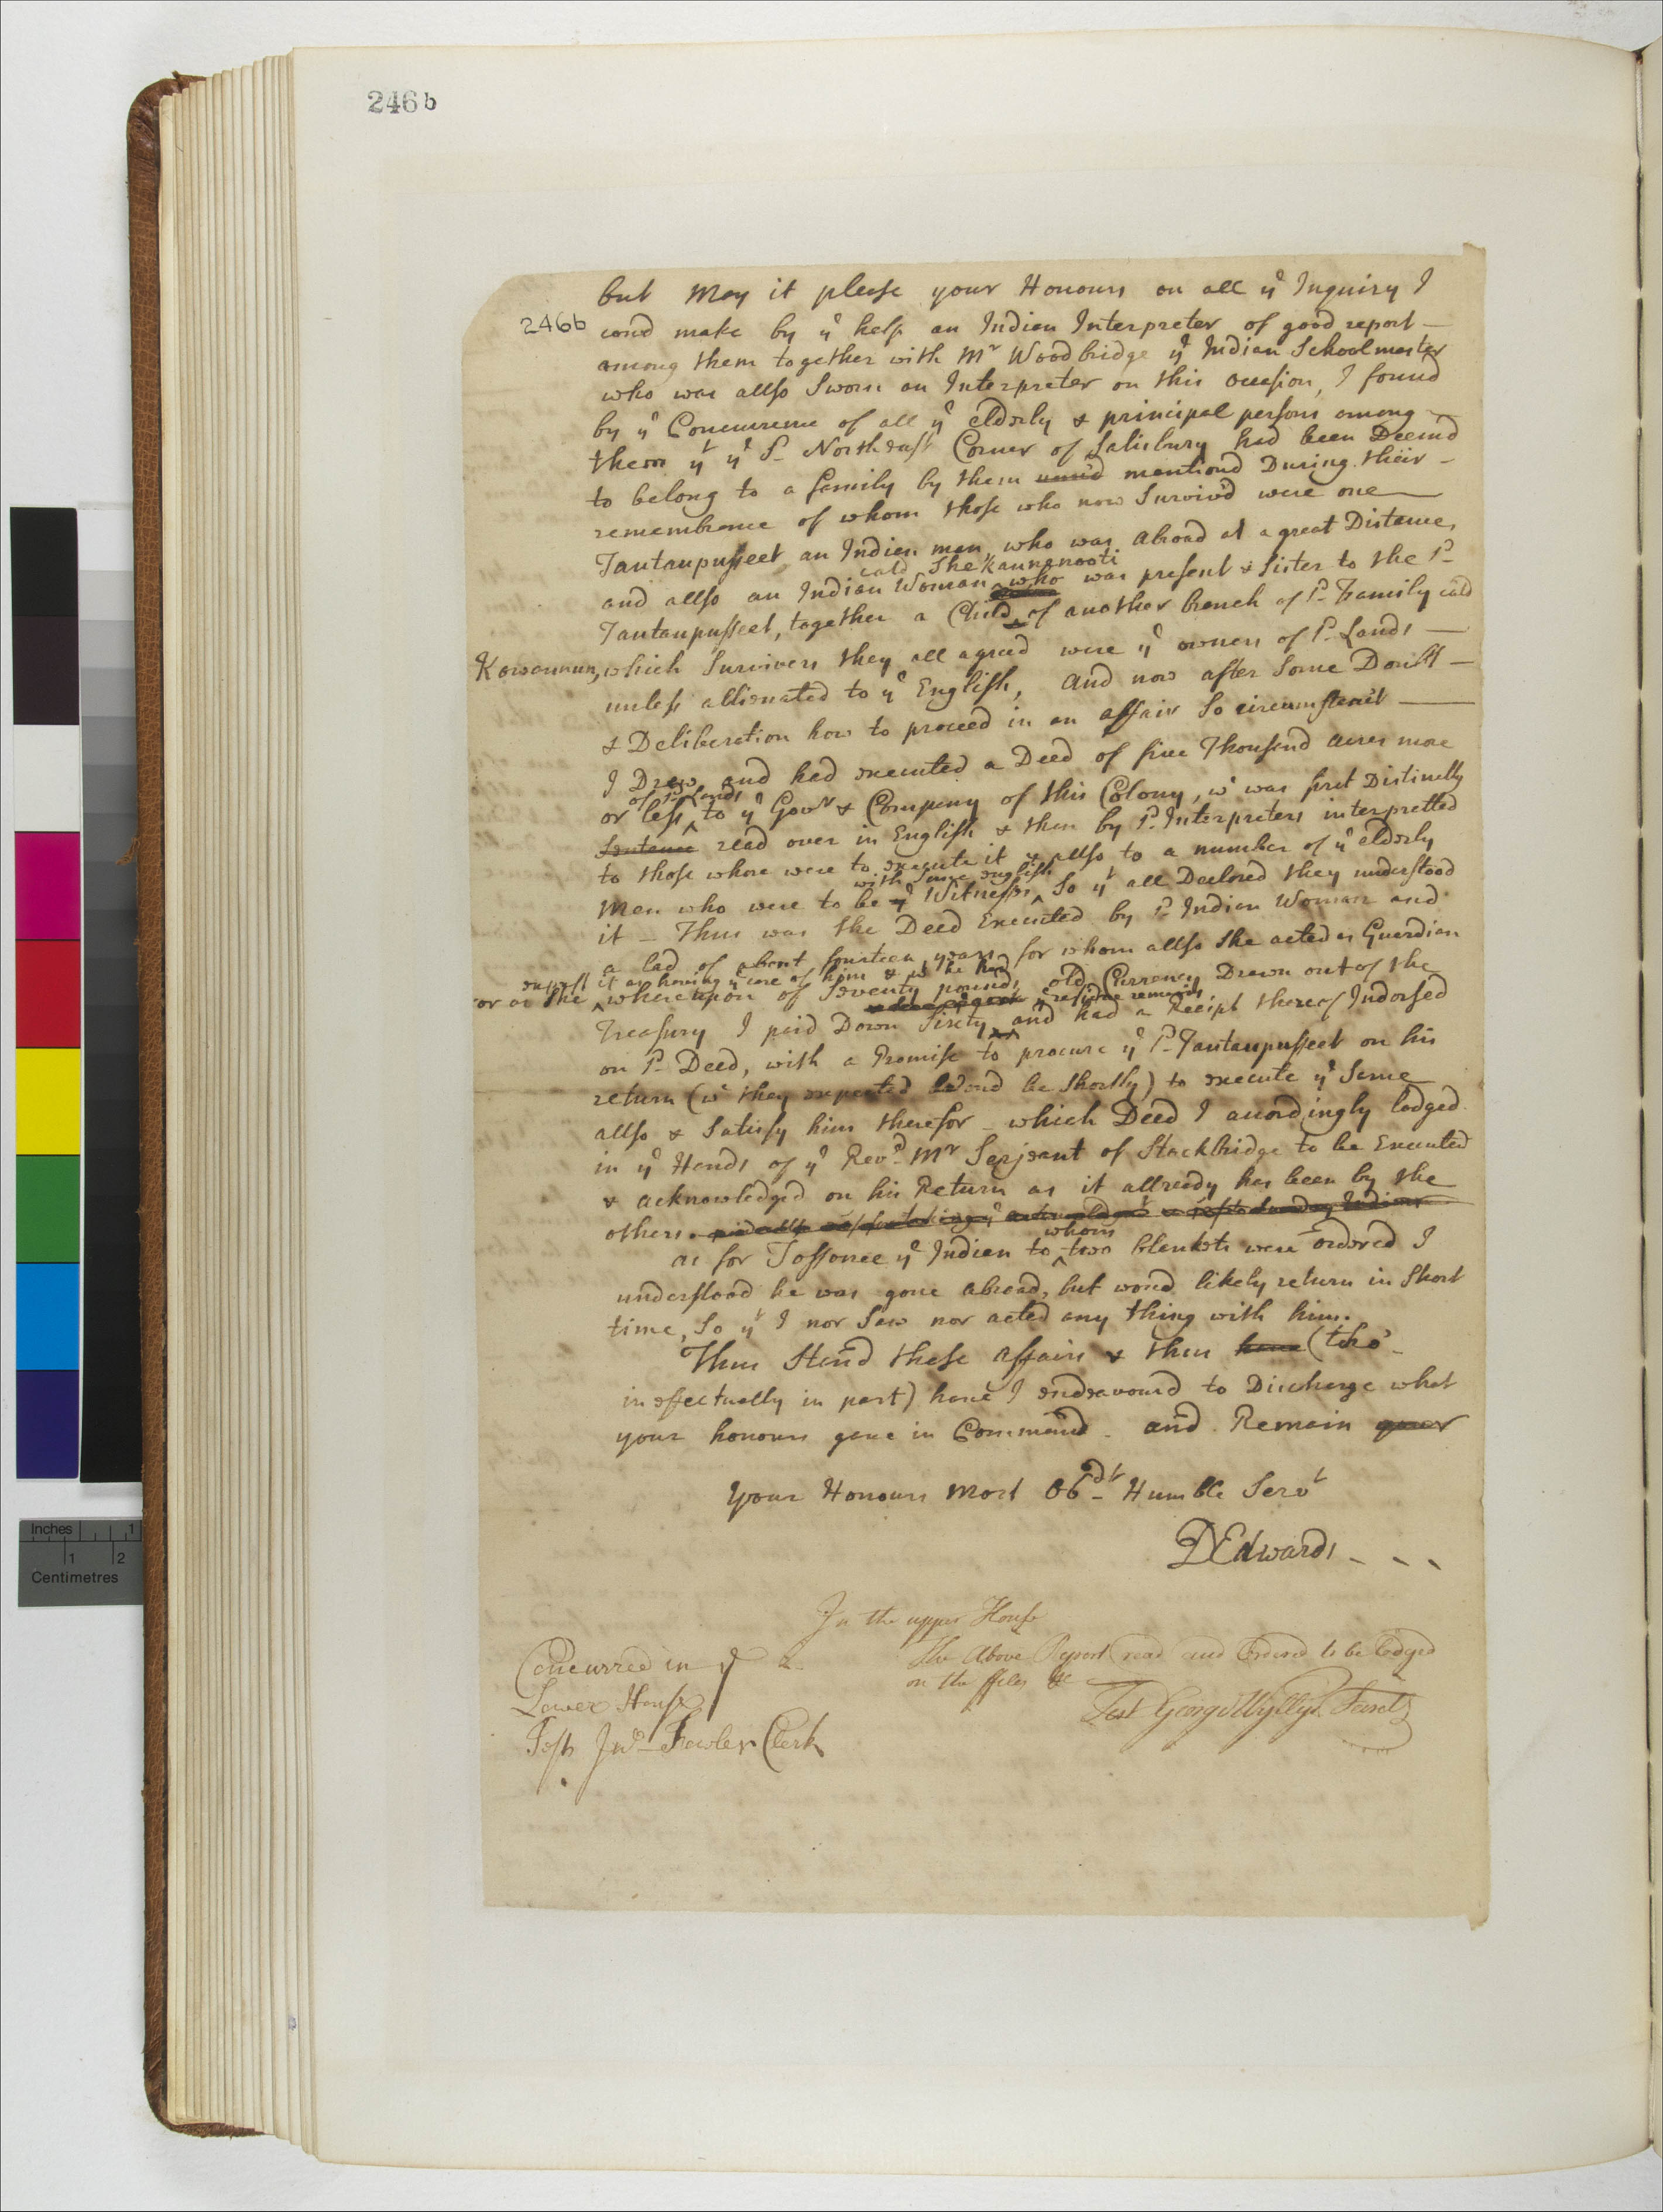 246b
246b
but May it please your Honours on all ye Inquiry I
cou'd make by ye help an Indian Interpreter of good report —
among them together with Mr Woodbridge ye Indian Schoolmaster
who was allso Sworn an Interpreter on this occasion, I found
by ye Concurrence of all ye elderly & principal persons among
them yt ye Sd Northeast Corner of Salisbury had been Deem'd
to belong to a family by them mentiond During their —
remembrance of whom those who now Surviv'd were one
Tantaupusseet an Indian man who was abroad at a great Distance,
cald Shekannenooti
and allso an Indian Woman who was present & Sister to the Sd
Tantaupusseet, together a Child of another branch of Sd Family cald
Kowannun, which Survivers they all agreed were ye owners of Sd Lands —
unless allienated to ye English, and now after Some Doubt —
& Deliberation how to proceed in an affair So circumstanc't —
I Drew and had executed a Deed of five Thousand acres more
of Sd Lands
or less to ye Govr & Company of this Colony, wc was first Distinctly
Sentence read over in English & then by Sd Interpreters interpretted
to those whore were to execute it & allso to a number of ye elderly
with Some english
Men who were to be ye Witnesses, So yt all Declared they understood
it — Thus was the Deed Executed by Sd Indian Woman and
a lad of about fourteen years for whom allso she acted as Guardian
exprest it as having ye care of him &
or as she whereupon of Seventy pounds old Currency Drawn out of the
ye residue remains
Treasury I paid Down Sixty and had a Receipt thereof Indorsed
on Sd Deed, with a Promise to procure ye Sd Tantaupusseet on his
return (wc they expected woud be Shortly) to execute ye Same
allso & Satisfy him therefor — which Deed I accordingly lodged
in ye Hands of ye Revd Mr Serjeant of Stockbridge to be Executed
& acknowledged on his Return as it allready has been by the
others.
whom
as for Tossonee ye Indian to two blankets were ordered I
understood he was gone abroad, but woud likely return in Short
time, So yt I nor Saw nor acted any thing with him.
Thus Stand these affairs & thus have (tho'
ineffectually in part) have I endeavourd to Discharge what
your honours gave in Command. and Remain your
Your Honours Most Obdt Humble Servt
DEdwards
In the upper House
The Above Report read and Ordered to be lodged
on the files &c
Test George Wyllys Secret
Concurred in ye
Lower House
Test Jno Fowler Clerk
Inches 1
1 2
Centimetres